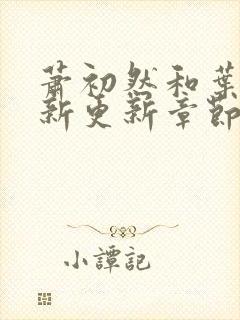 萧初然和葉
新更新章節
小譚記